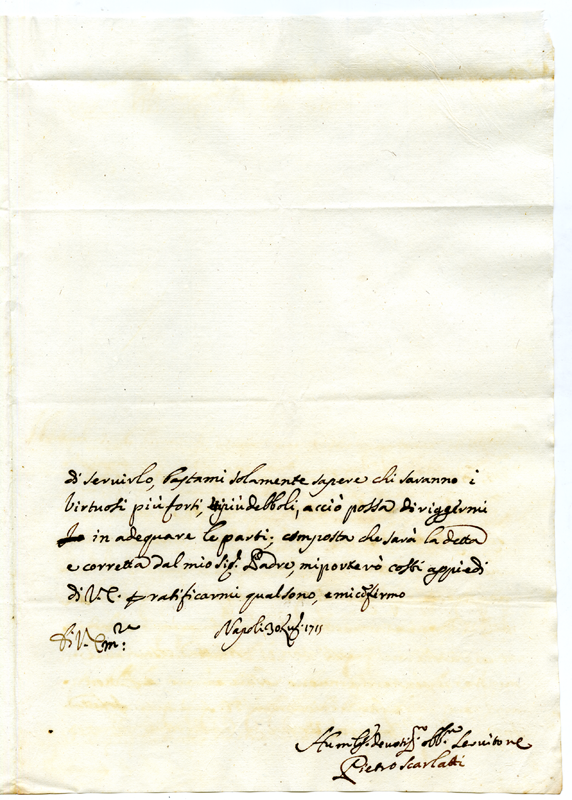 di servirlo, bastami solamente sapere chi saranno i
virtuosi più forti, i più debboli, acciò possa diriggermi
in adequare le parti; composta che sarà la detta
e corretta dal mio Sig.r Padre, mi porterò costì appiedi
di V.E. ratificarmi qual sono, e mi cōfermo
Di V. Em.za
Napoli 30 1715
Humil.o devotis.o obb.o Servitore
Pietro Scarlatti